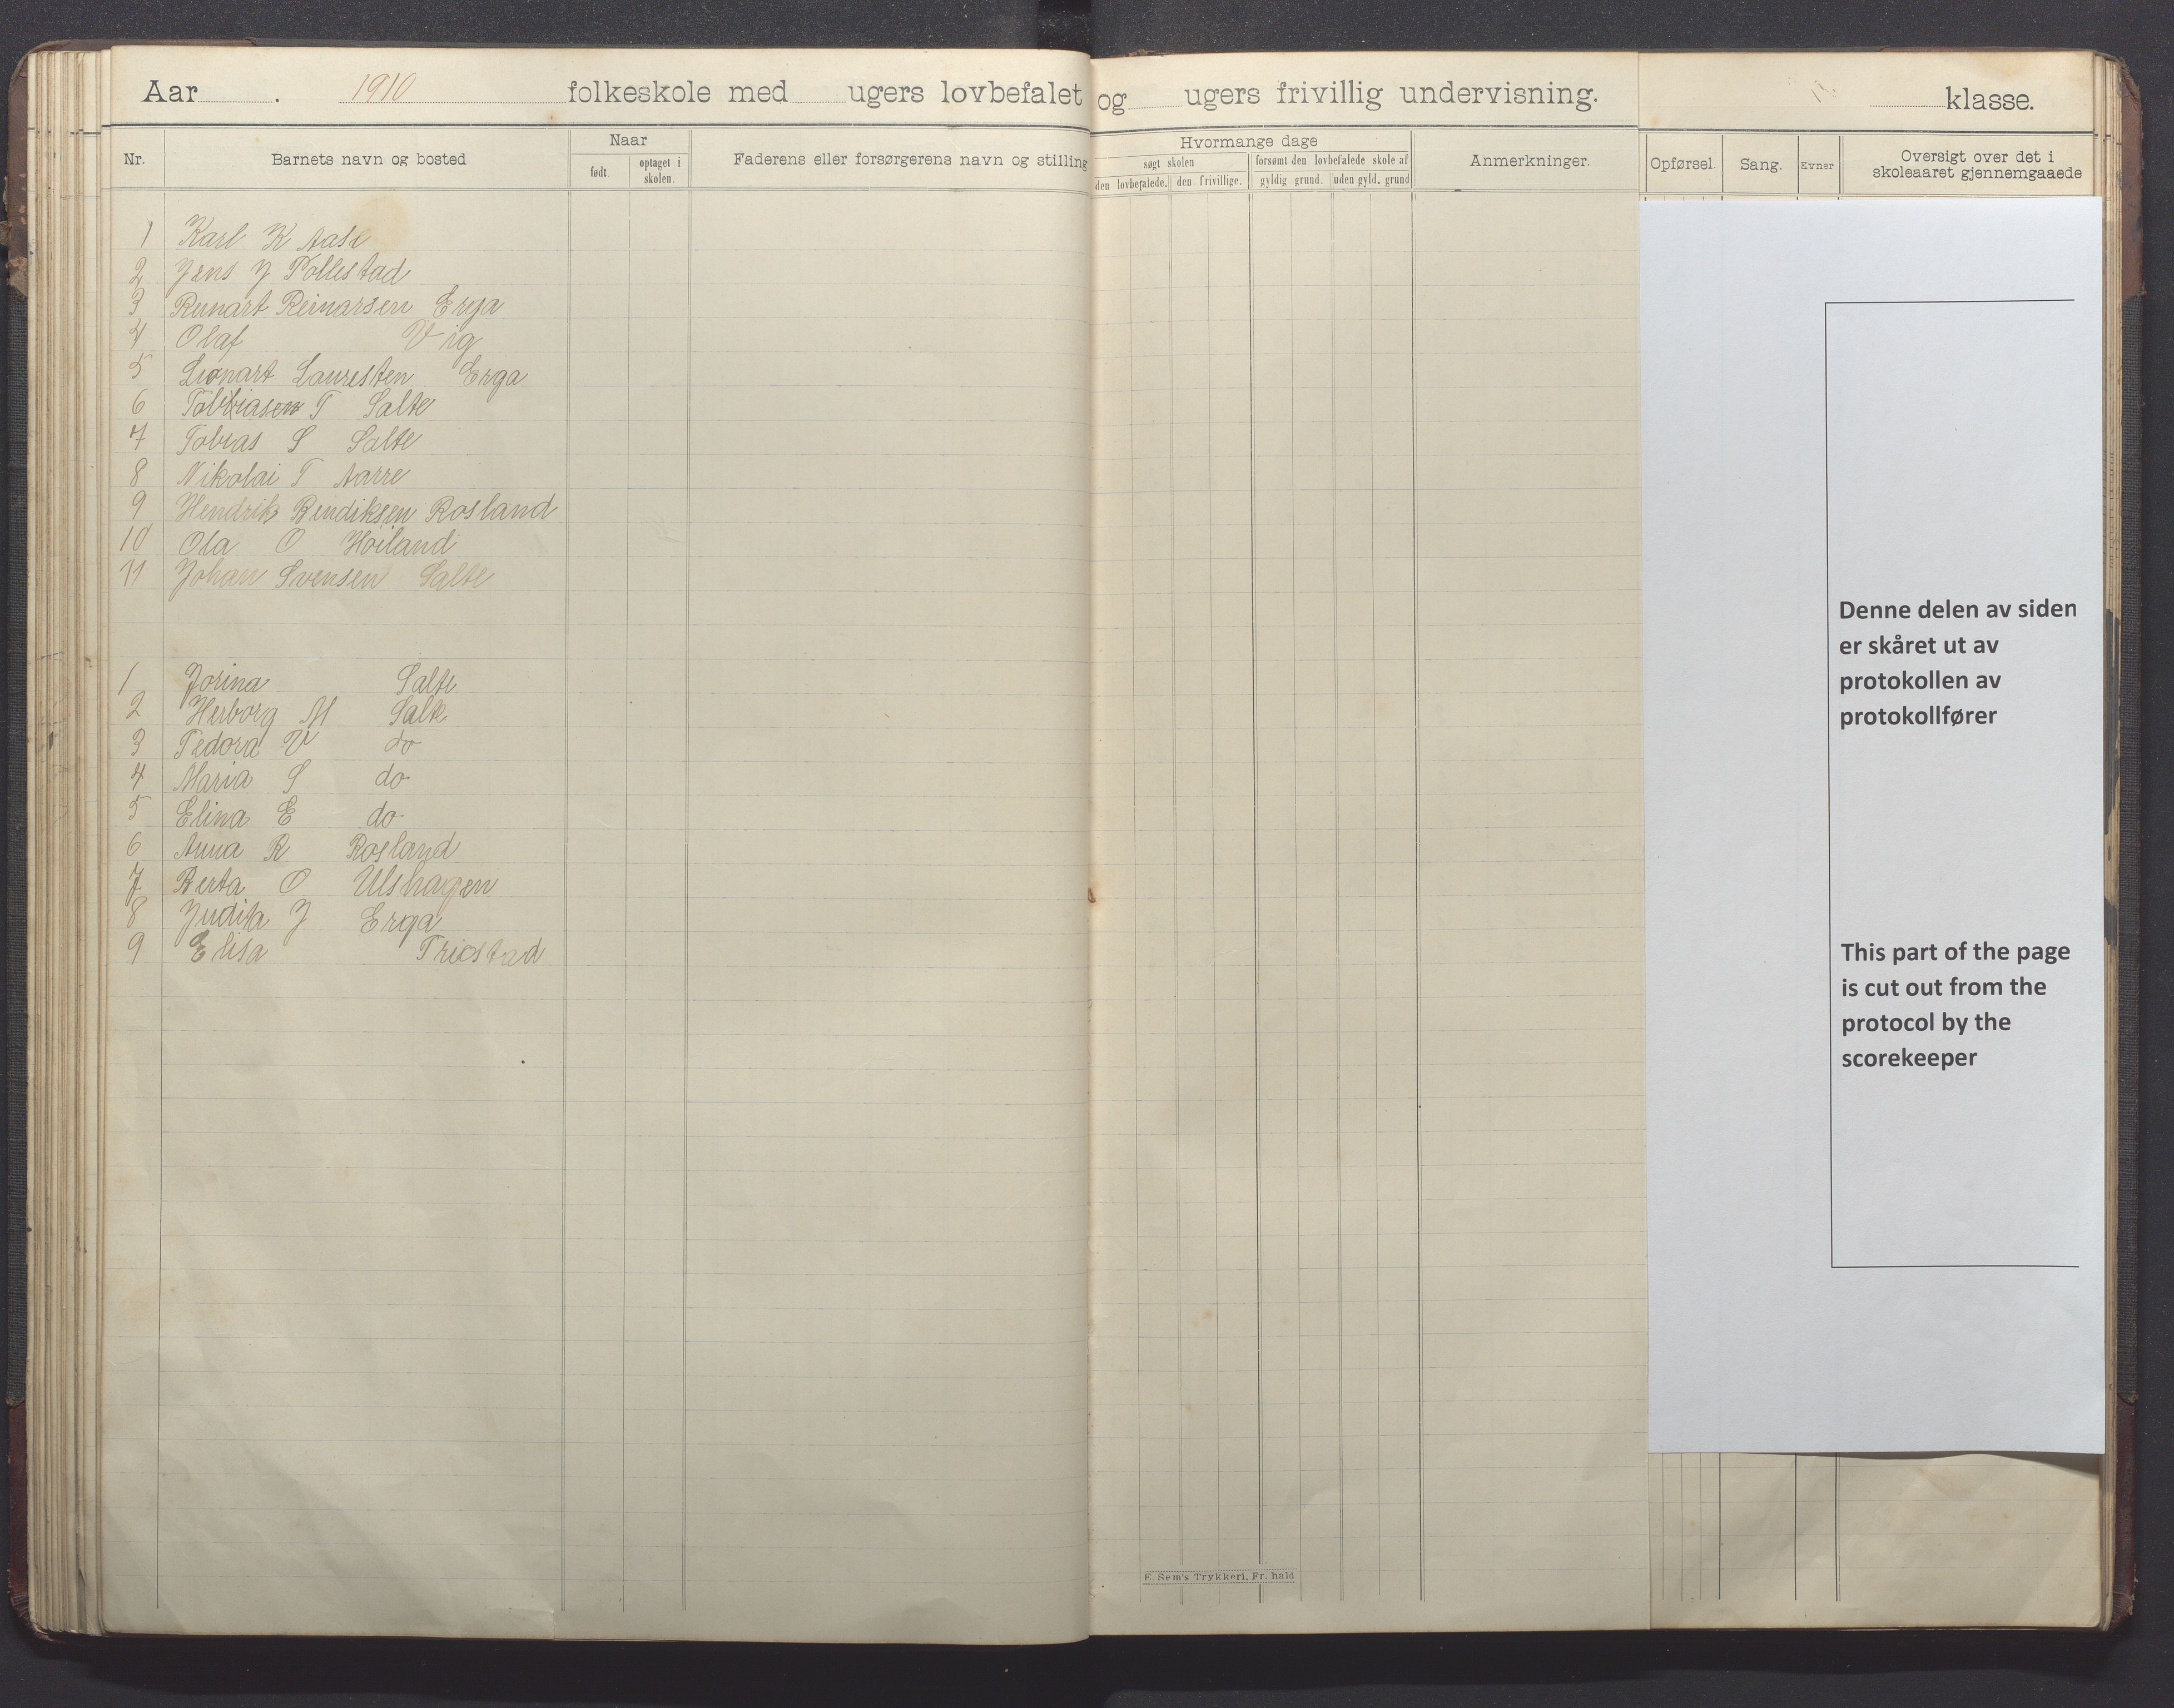 Aar . 1910 folkeskole med ugers lovbefalet og ugers frivillig undervisning. klasse.
Nr.
Barnets navn og bosted
Naar
født.
optaget i
skolen.
Faderens eller forsørgerens navn og stilling
Hvormange dage
søgt skolen
den lovbefalede.
den frivillige.
forsømt den lovbefalede skole af
gyldig grund.
uden gyld. grund
Anmerkninger.
Opførsel.
Sang.
Evner
Oversigt over det i
skoleaaret gjennemgaaede
1 Karl K Aase
2 Jens J Pollestad
3 Reinart Reinarsen Erga
4 Olaf Vig
5 Lauresten Erga
6 T Salte
7 Tobias S Salte
8 Nikolai T Aarre
9 Hendrik Bendiksen Rosland
10 Ola O Høiland
11 Johan Svensen Salte
1 Jorina Salte
2 Herborg M Salte
3 Tedora V do
4 Maria S do
5 Elina E do
6 Anna R Rosland
7 Berta O Ulshagen
8 Judita J Erga
9 Elisa
Denne delen av siden
er skåret ut av
protokollen av
protokollfører
This part of the page
is cut out from the
protocol by the
scorekeeper
E. Sem's Trykkeri, Fr. hald